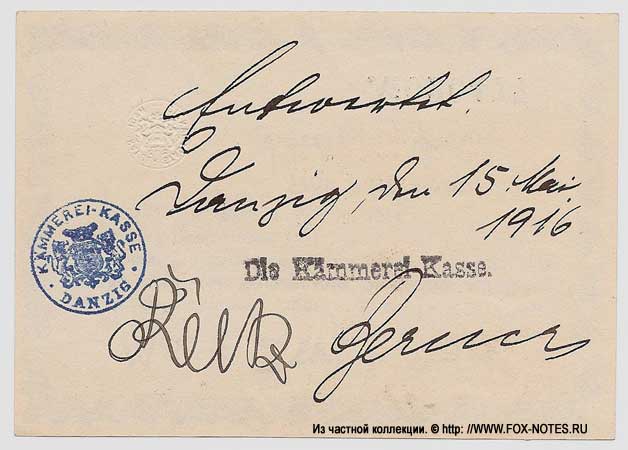 Entwertet.
Danzig, den 15 Mai
1916
KÄMMEREI-KASSE
DANZIG
Die Kämmerei-Kasse.
Из частной коллекции. © http: //WWW.FOX-NOTES.RU